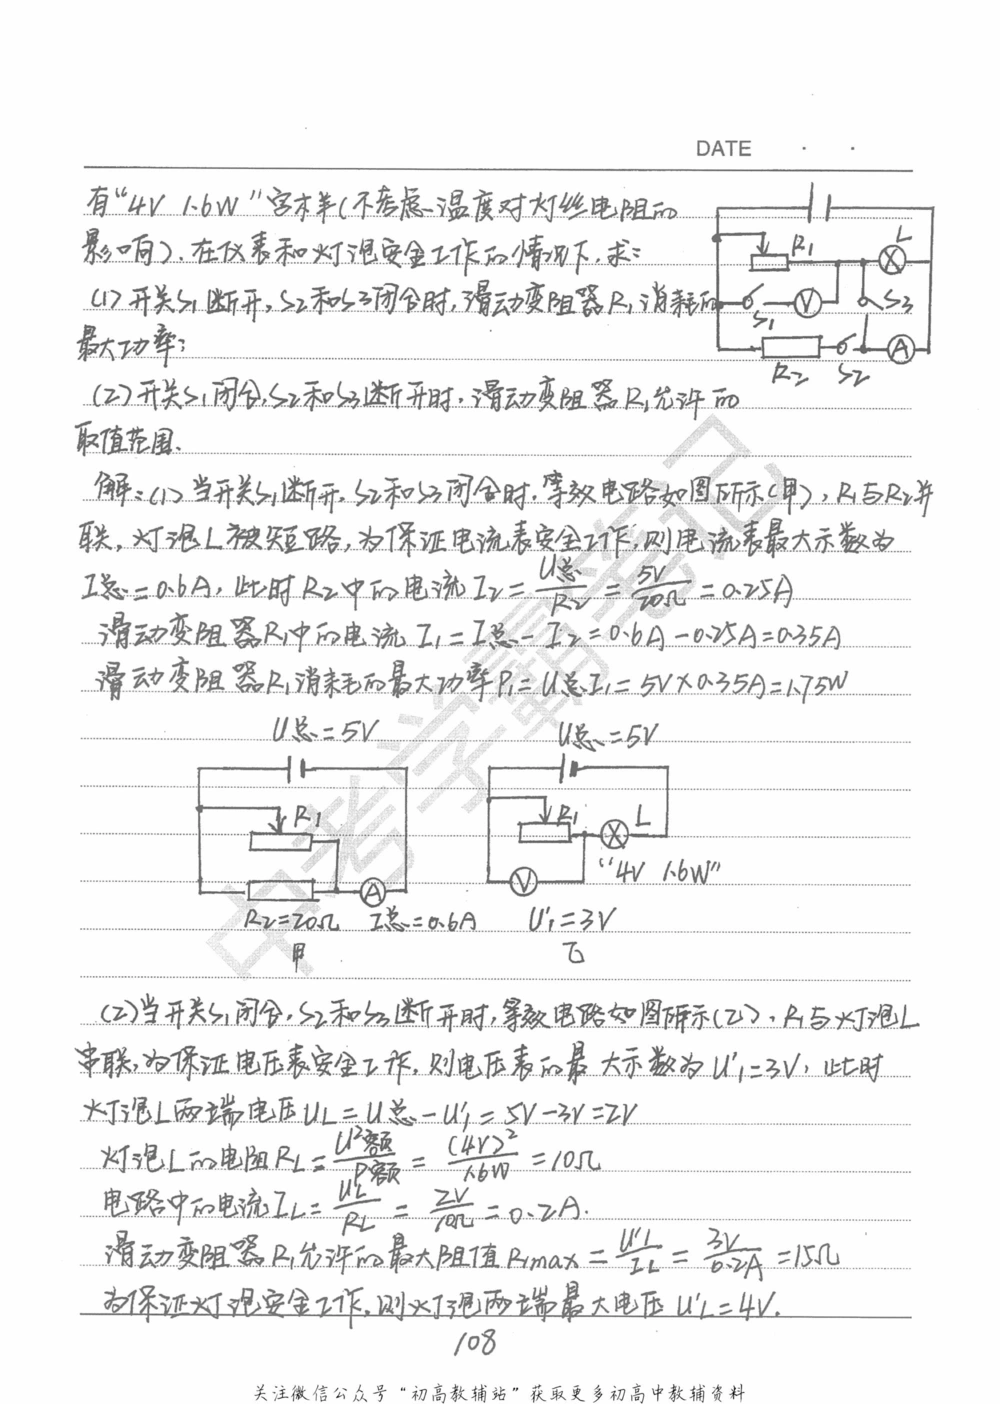 DATE
有“4V 1.6W”字样(不考虑温度对灯丝电阻的
影响).在仪表和灯泡安全工作的情况下,求:
(1)开关S1断开,S2和S3闭合时,滑动变阻器R1消耗的
最大功率;
(2)开关S1闭合,S2和S3断开时,滑动变阻器R1允许的
取值范围.
R1 L
S1 V S3
R2 S2 A
解:(1)当开关S1断开,S2和S3闭合时,等效电路如图所示(甲),R1与R2并
联,灯泡L被短路,为保证电流表安全工作,则电流表最大示数为
I总=0.6A,此时R2中的电流I2=U总/R2=5V/20Ω=0.25A
滑动变阻器R1中的电流I1=I总-I2=0.6A-0.25A=0.35A
滑动变阻器R1消耗的最大功率P1=U总I1=5V×0.35A=1.75W
U总=5V U总=5V
R1 R1 L
A V “4V 1.6W”
R2=20Ω I总=0.6A U'1=3V
甲 乙
(2)当开关S1闭合,S2和S3断开时,等效电路如图所示(乙),R1与灯泡L
串联,为保证电压表安全工作,则电压表的最大示数为U'1=3V,此时
灯泡L两端电压UL=U总-U'1=5V-3V=2V
灯泡L的电阻RL=U²额/P额=(4V)²/1.6W=10Ω
电路中的电流IL=UL/RL=2V/10Ω=0.2A.
滑动变阻器R1允许的最大阻值R1max=U'1/IL=3V/0.2A=15Ω
为保证灯泡安全工作,则灯泡两端最大电压U'L=4V.
108
关注微信公众号“初高教辅站”获取更多初高中教辅资料
中考学霸笔记